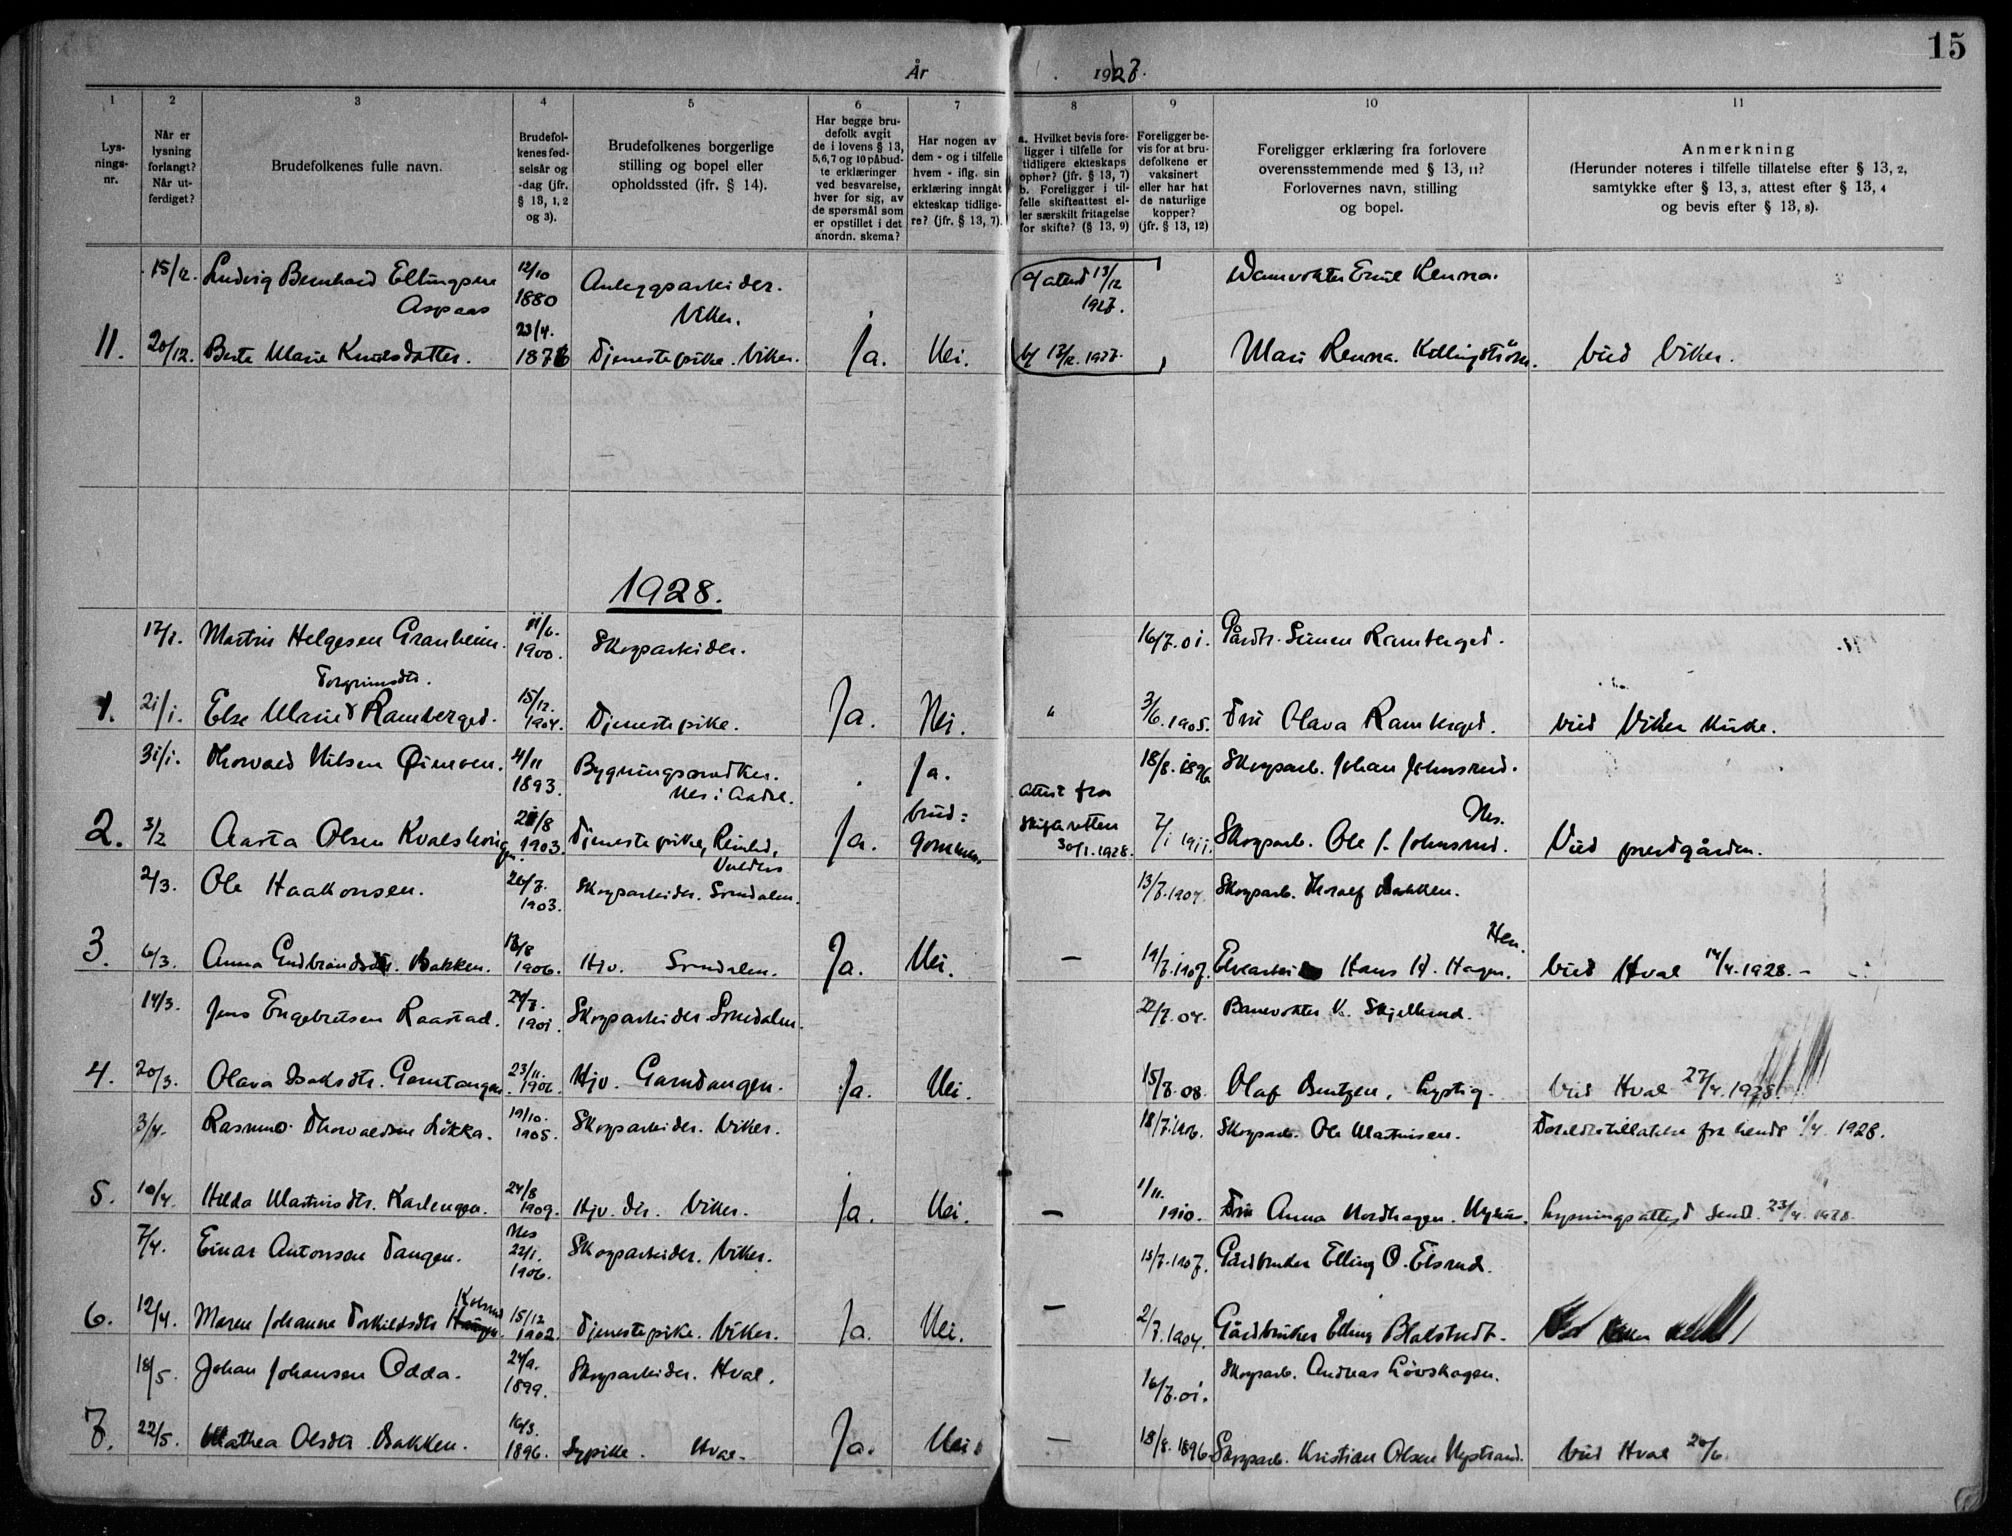 15
År 1927.
1
2
3
4
5
6
7
8
9
10
11
Lys-
nings-
nr.
Når er
lysning
forlangt?
Når ut-
ferdiget?
Brudefolkenes fulle navn.
Brudefol-
kenes fød-
selsår og
-dag (jfr.
§ 13, 1, 2
og 3).
Brudefolkenes borgerlige
stilling og bopel eller
opholdssted (ifr. § 14).
Har begge bru-
defolk avgit
de i lovens § 13,
5,6,7 og 10 påbud-
te erklæringer
ved besvarelse,
hver for sig, av
de spørsmål som
er opstillet i det
anordn. skema?
Har nogen av
dem - og i tilfelle
hvem - iflg. sin
erklæring inngåt
ekteskap tidlige-
re? (jfr. § 13, 7).
a. Hvilket bevis fore-
ligger i tilfelle for
tidligere ekteskaps
ophør? (jfr. § 13, 7)
b. Foreligger i til-
felle skifteattest el-
ler særskilt fritagelse
for skifte? (§ 13, 9)
Foreligger be-
vis for at bru-
defolkene er
vaksinert
eller har hat
de naturlige
kopper?
(jfr. § 13, 12)
Foreligger erklæring fra forlovere
overensstemmende med § 13, 11?
Forlovernes navn, stilling
og bopel.
Anmerkning
(Herunder noteres i tilfelle tillatelse efter § 13, 2,
samtykke efter § 13, 3, attest efter § 13, 4
og bevis efter § 13, 8).
15/12. Ludvig Bernhard Ellingsen 12/10 Anleggsarbeider. a/ attest 13/12 Damvokter Emil Renna.
Aspaas 1880 Viker. 1927.
11. 20/12. Berte Marie Knudsdatter. 23/4. 1876 Tjenestepike. Viker. Ja. Nei. b/ 13/12. 1927. Mari Renna. Killingstrøm. Vied Viker.
1928.
17/1. Martin Helgesen Granheim. 11/6. 1900. Skogarbeider. 16/7.01. Gårdbr. Simen Ramberged.
Torgrimsdtr.
1. 21/1. Else Marie Ramberged. 15/12. 1904. Tjenestepike. Ja. Nei. " 3/6.1905. Fru Olava Ramberged. Vied Viker kirke.
31/1. Thorvald Nilsen Øimoen. 4/11 1893. Bygningssnedker. Ja. 18/8.1896 Skogarb. Johan Johnsrud.
Nes i Aadal. Attest fra
2. 3/2 Aasta Olsen Kvalshaugen. 21/8 1903. Tjenestepike, Reinli, Ja. brud= gommen. skifteretten 30/1.1928. 7/1 1911. Skogarb. Ole J. Johnsrud. Nes. Vied prestgården.
Valdres
2/3. Ole Haakonsen. 26/7. 1903. Skogarbeider. Sørdalen. 13/7.1904. Skogarb. Thoralf Bakken.
3. 6/3. Anna Gudbrandsdtr. Bakken. 13/8 1906. Hjv. Sørdalen. Ja. Nei. — 19/7.1907. Elvearbeider Hans H. Hagen. Hen. Vied Hval 14/4.1928. -
14/3. Jens Engebretsen Raastad. 24/7. 1901. Skogarbeider Sørdalen. 22/7.04. Banevokter K. Skjellerud.
4. 20/3. Olava Isaksdtr. Gamtangen. 23/11. 1906. Hjv. Gamtangen. Ja. Nei. 15/7.08. Olaf Berntzen, Lystig. Vied Hval 27/4.1928.
3/4. Rasmus Thorvaldsen Løkka. 19/10. 1905. Skogarbeider. Viker. 18/7.1906. Skogarb. Ole Martinsen. Foreldretillatelse for hende 1/4 1928.
5. 10/4. Hilda Martinsdtr. Karlengen. 24/8 1909. Hjv. dtr. Viker. Ja. Nei. — 1/11. 1910. Fru Anna Nordhagen. Lysningsattest sendt 23/4. 1928
7/4. Einar Antonsen Tangen. Nes 22/1. 1906. Skogarbeider. Viker. 15/7.1907. Gårdbruker Elling O. Elsrud.
Kolsrud
6. 12/4. Maren Johanne Torkildsdtr Haugen. 15/12 1902. Tjenestepike. Viker. Ja. Nei. — 2/7.1904. Gårdbruker Elling Blakstvedt.
18/5. Johan Johansen Odda. 24/9. 1899. Skogarbeider. Hval. 16/7.01. Skogarb. Andreas Løvshagen.
7. 22/5. Mathea Olsdtr Bakken. 16/3. 1896. Sypike. Hval. Ja. Nei. — 18/8.1896 Skogarb. Kristian Olsen Nystrand. Vied Hval 20/6.